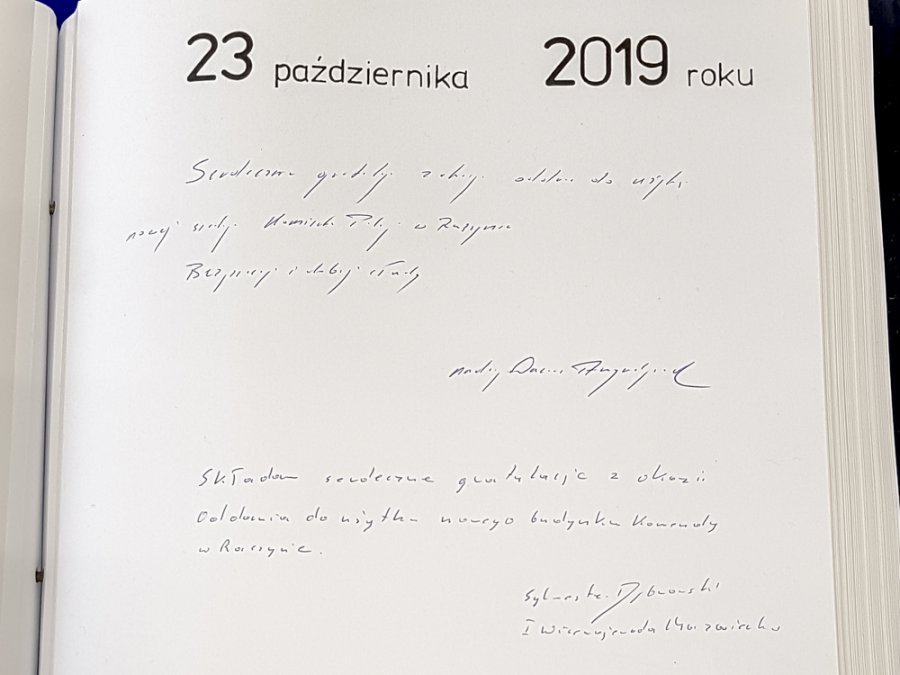 23 października 2019 roku
Serdeczne gratulacje z okazji oddania do użytku
nowej siedziby Komisariatu Policji w Raszynie
Bezpiecznej i dobrej służby
Składam serdeczne gratulacje z okazji
Oddania do użytku nowego budynku Komendy
w Raszynie.
Sylwester Dąbrowski
I Wicewojewoda Mazowiecki